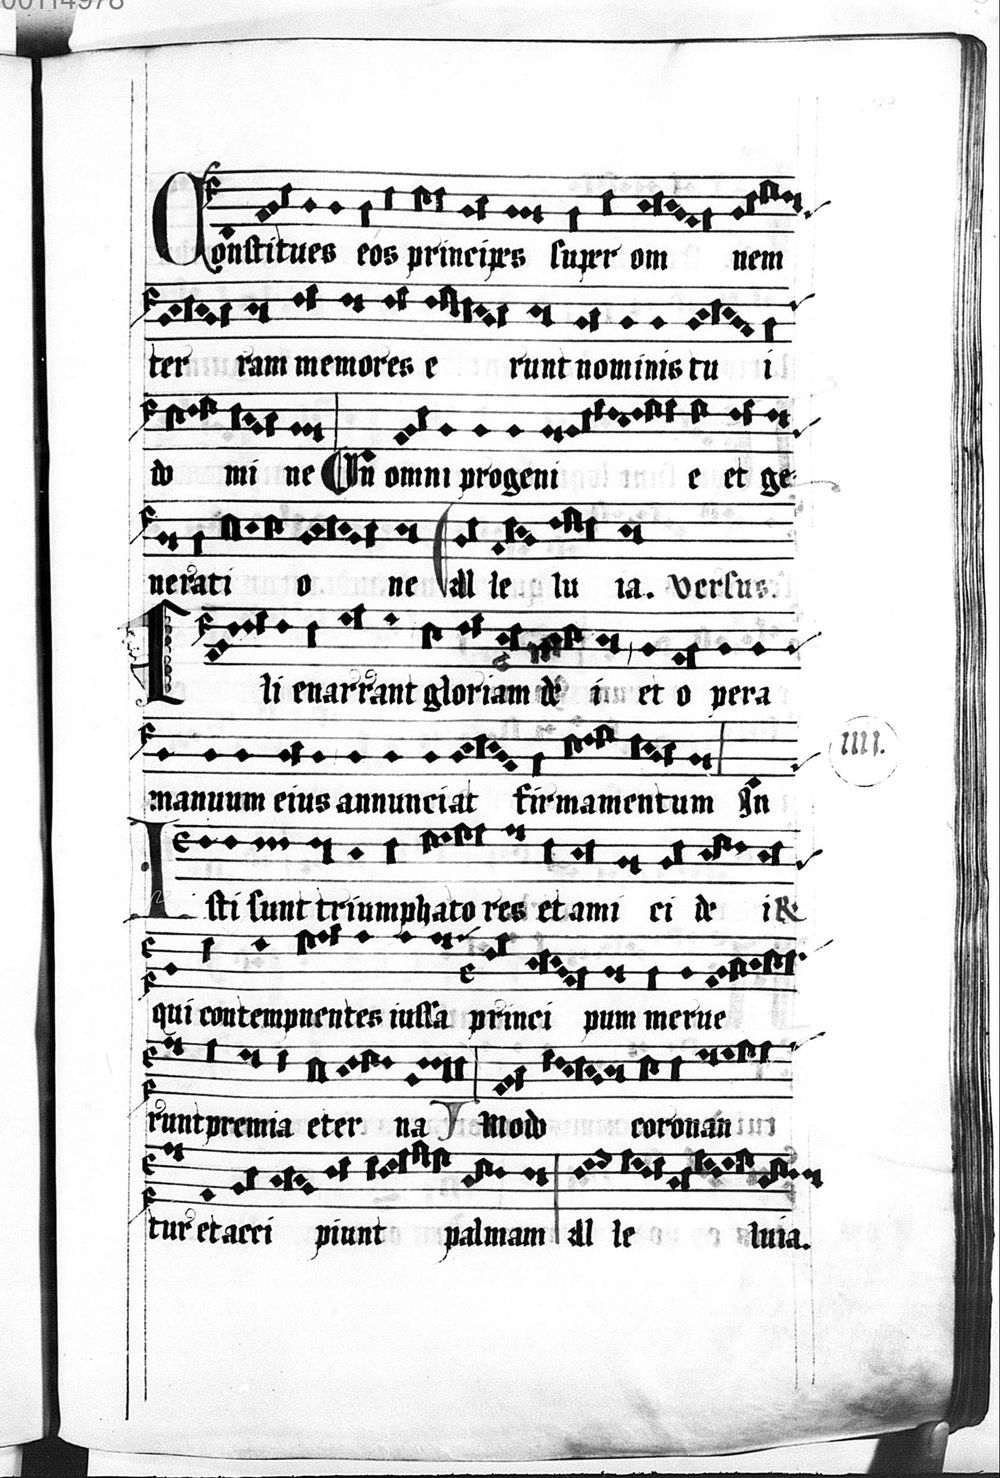 00114978
Constitues eos principes super om nem
ter ram memores e runt nominis tu i
do mi ne In omni progeni e et ge
nerati o ne All le lu ia. Versus.
li enarrant gloriam de i et o pera
manuum eius annunciat firmamentum In
IIII.
Isti sunt triumphato res et ami ci de i &
qui contempnentes iussa princi pum merue
runt premia eter na Modo coronan
tur et acci piunt palmam All le luia.